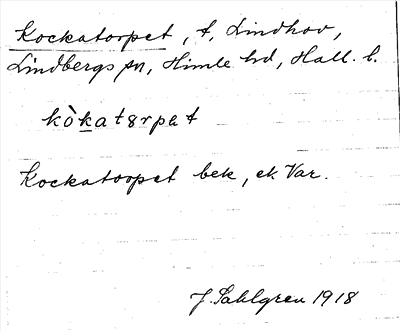 Kockatorpet, t, Lindhov,
Lindbergs sn, Himle hd, Hall. l.
kòkatɞrpet
Kockatorpet bek, ek Var.
J. Sahlgren 1918